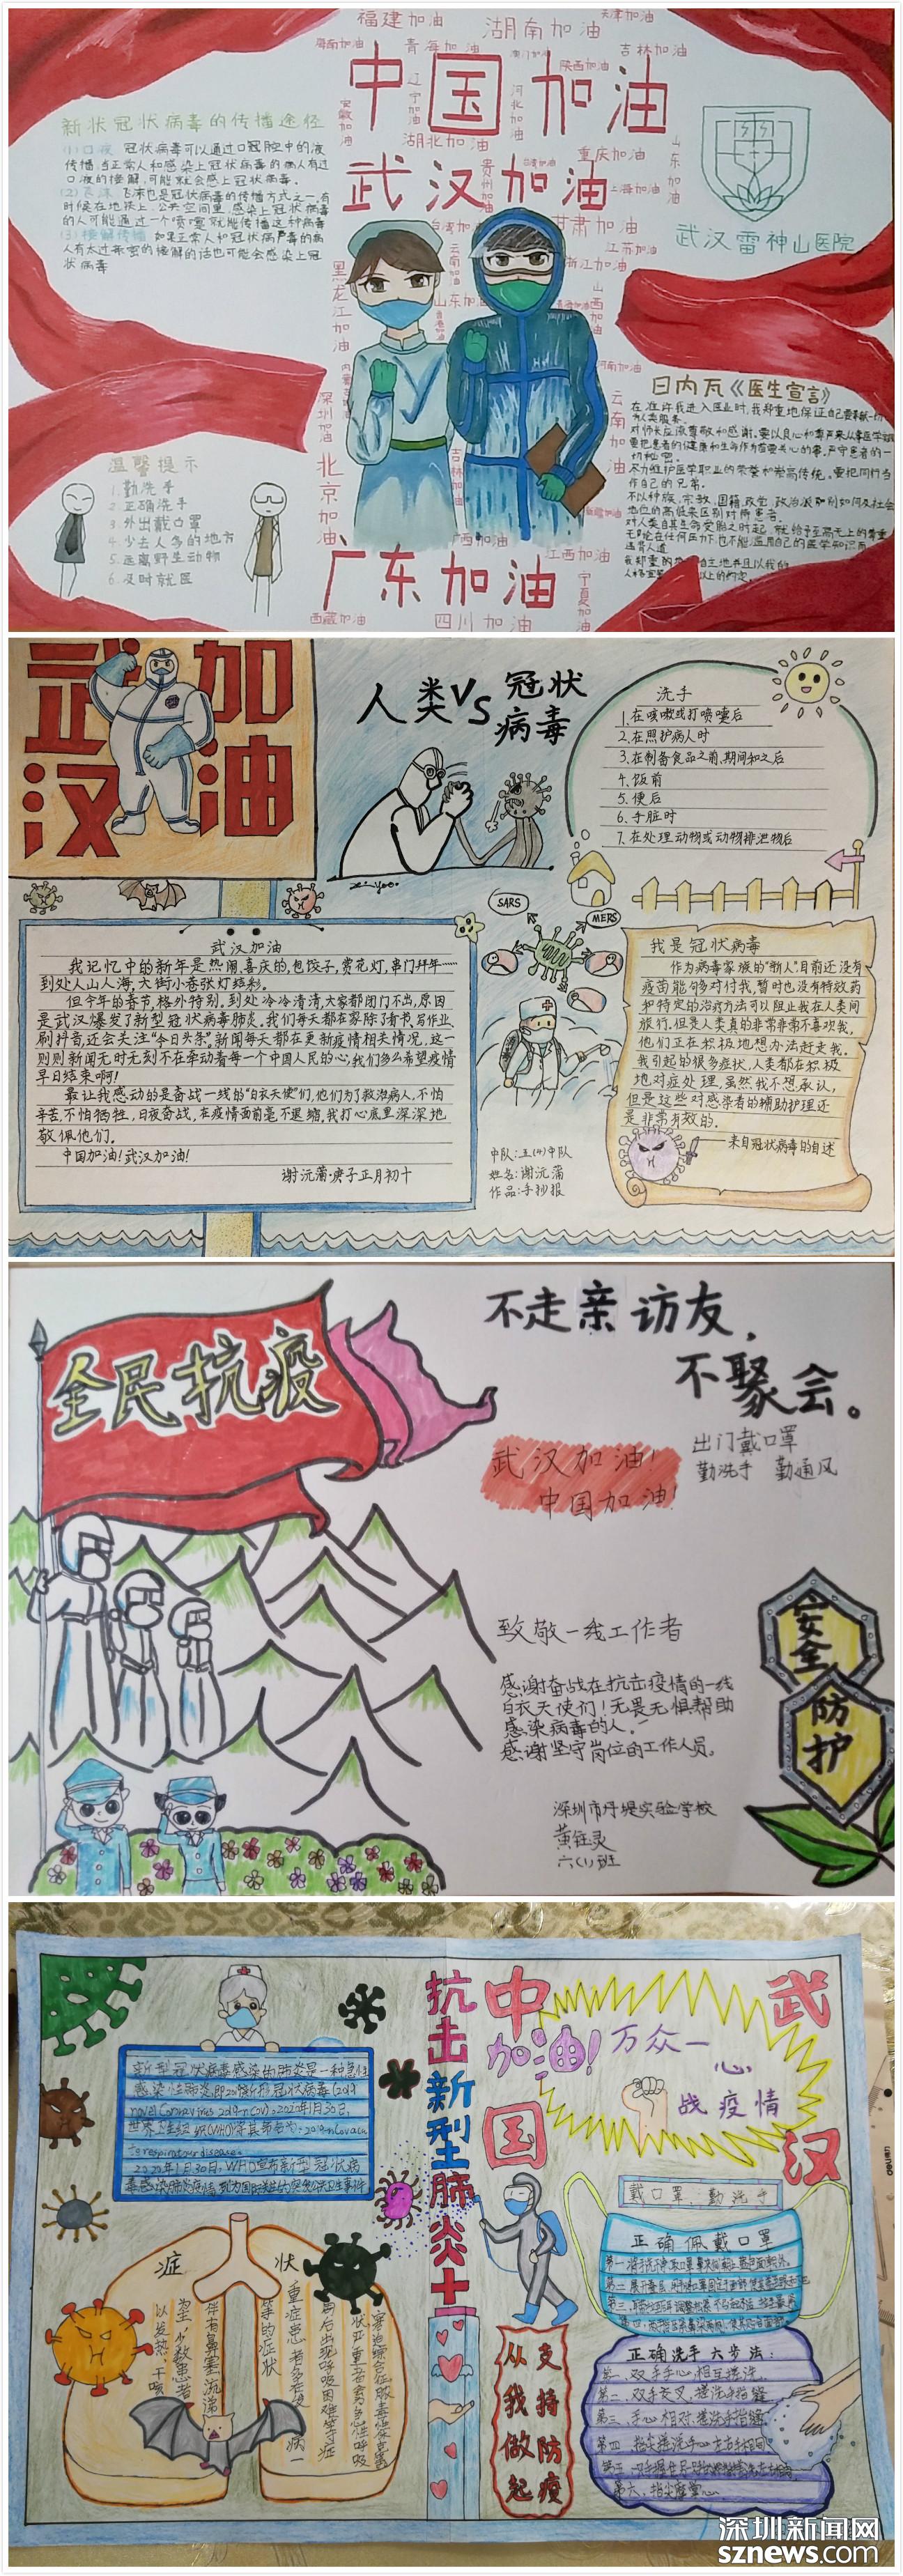 福建加油
湖南加油
天津加油
海南加油
青海加油
澳门加油
吉林加油
陕西加油
中国加油
辽宁加油
河北加油
安徽加油
湖北加油
重庆加油
山东加油
贵州加油
武汉加油
上海加油
台湾加油
甘肃加油
云南加油
江苏加油
浙江加油
黑龙江加油
山西加油
河南加油
内蒙古加油
深圳加油
云南加油
北京加油
吉林加油
新疆加油
广西加油
江西加油
宁夏加油
广东加油
西藏加油
四川加油
新状冠状病毒的传播途径
(1)口液 冠状病毒可以通过口冠腔中的液
传播,当正常人和感染上冠状病毒的病人有过
口液的接解,可能就会感上冠状病毒.
(2)飞沫 飞沫也是冠状病毒的传播方式之一,有
时候在地铁上,公共空间里,感染上冠状病毒
的人可能通过一个喷嚏就能传播这种病毒
(3)接解传播 如是正常人和冠状病严毒的病
人有太过亲密的接解的话也可能会感染上冠
状病毒
武汉雷神山医院
温馨提示
1.勤洗手
2.正确洗手
3.外出戴口罩
4.少去人多的地方
5.远离野生动物
6.及时就医
日内瓦《医生宣言》
在准许我进入医业时,我郑重地保证自己要奉献一切
为人类服务.
对师长应该尊敬和感谢,要以良心和尊严来从事医学实践
要把患者的健康和生命作为首要关心的事,严守患者的一
切秘密.
尽力维护医学职业的荣誉和崇高传统,要把同行当
作自己的兄弟.
不以种族,宗教,国籍,政党,政治派别如何及社会
地位的高低来区别对待患者.
对人类自其生命受胎之时起,就给予至高无上的尊重,
无论在任何压力下,也不能滥用自己的医学知识而
违背人道
武汉加油
人类VS冠状
病毒
洗手
1.在咳嗽或打喷嚏后
2.在照护病人时
3.在制备食品之前、期间和之后
4.饭前
5.便后
6.手脏时
7.在处理动物或动物排泄物后
SARS
MERS
武汉加油
我记忆中的新年是热闹、喜庆的,包饺子,赏花灯,串门拜年……
到处人山人海,大街小巷张灯结彩.
但今年的春节,格外特别,到处冷冷清清,大家都闭门不出,原因
是武汉爆发了新型冠状病毒肺炎.我们每天都在家除了看书、写作业、
刷抖音,还会关注“今日头条”,新闻每天都在更新疫情相关情况,这一
则则新闻无时无刻不在牵动着每一个中国人民的心,我们多么希望疫情
早日结束啊!
最让我感动的是奋战一线的“白衣天使”们,他们为了救治病人,不怕
辛苦,不怕牺牲,日夜奋战,在疫情面前毫不退缩,我打心底里深深地
敬佩他们.
中国加油!武汉加油!
谢沅蒲·庚子正月初十
消毒
中队:五(4)中队
姓名:谢沅蒲
作品:手抄报
我是冠状病毒
作为病毒家族的“新人”,目前还没有
疫苗能够对付我,暂时也没有特效药
和特定的治疗方法可以阻止我在人类间
旅行.但是人类真的非常非常不喜欢我.
他们正在积极地想办法赶走我.
我引起的很多症状,人类都在积极
地对症处理,虽然我不想承认,
但是这些对感染者的辅助护理还
是非常有效的.
——来自冠状病毒的自述
全民抗疫
不走亲访友,
不聚会。
出门戴口罩
勤洗手 勤通风
武汉加油!
中国加油!
致敬一线工作者
感谢奋战在抗击疫情的一线
白衣天使们!无畏无惧帮助
感染病毒的人。
感谢坚守岗位的工作人员。
深圳市丹堤实验学校
黄钰灵
六(1)班
安全
防护
抗击新型肺炎
中国
加油!
武汉
万众一
心
战疫情
新型冠状病毒感染的肺炎是一种急性
感染性肺炎,
novel Coronavirus, 2019-nCoV).2020年1月30日,
2020年1月30日,WHO宣布新型冠状病
戴口罩,勤洗手
正确佩戴口罩
正确洗手六步法:
第一、双手手心相互搓洗.
第二、双手交叉,搓洗手指缝
第三、手心相对,搓洗手指缝
第四、指尖搓洗手心,左右手相同
第六、指尖摩掌心
症状
以发热、干咳
为主,少数患者
伴有鼻塞、流涕
等的症状
支持防疫
从我做起
深圳新闻网
sznews.com